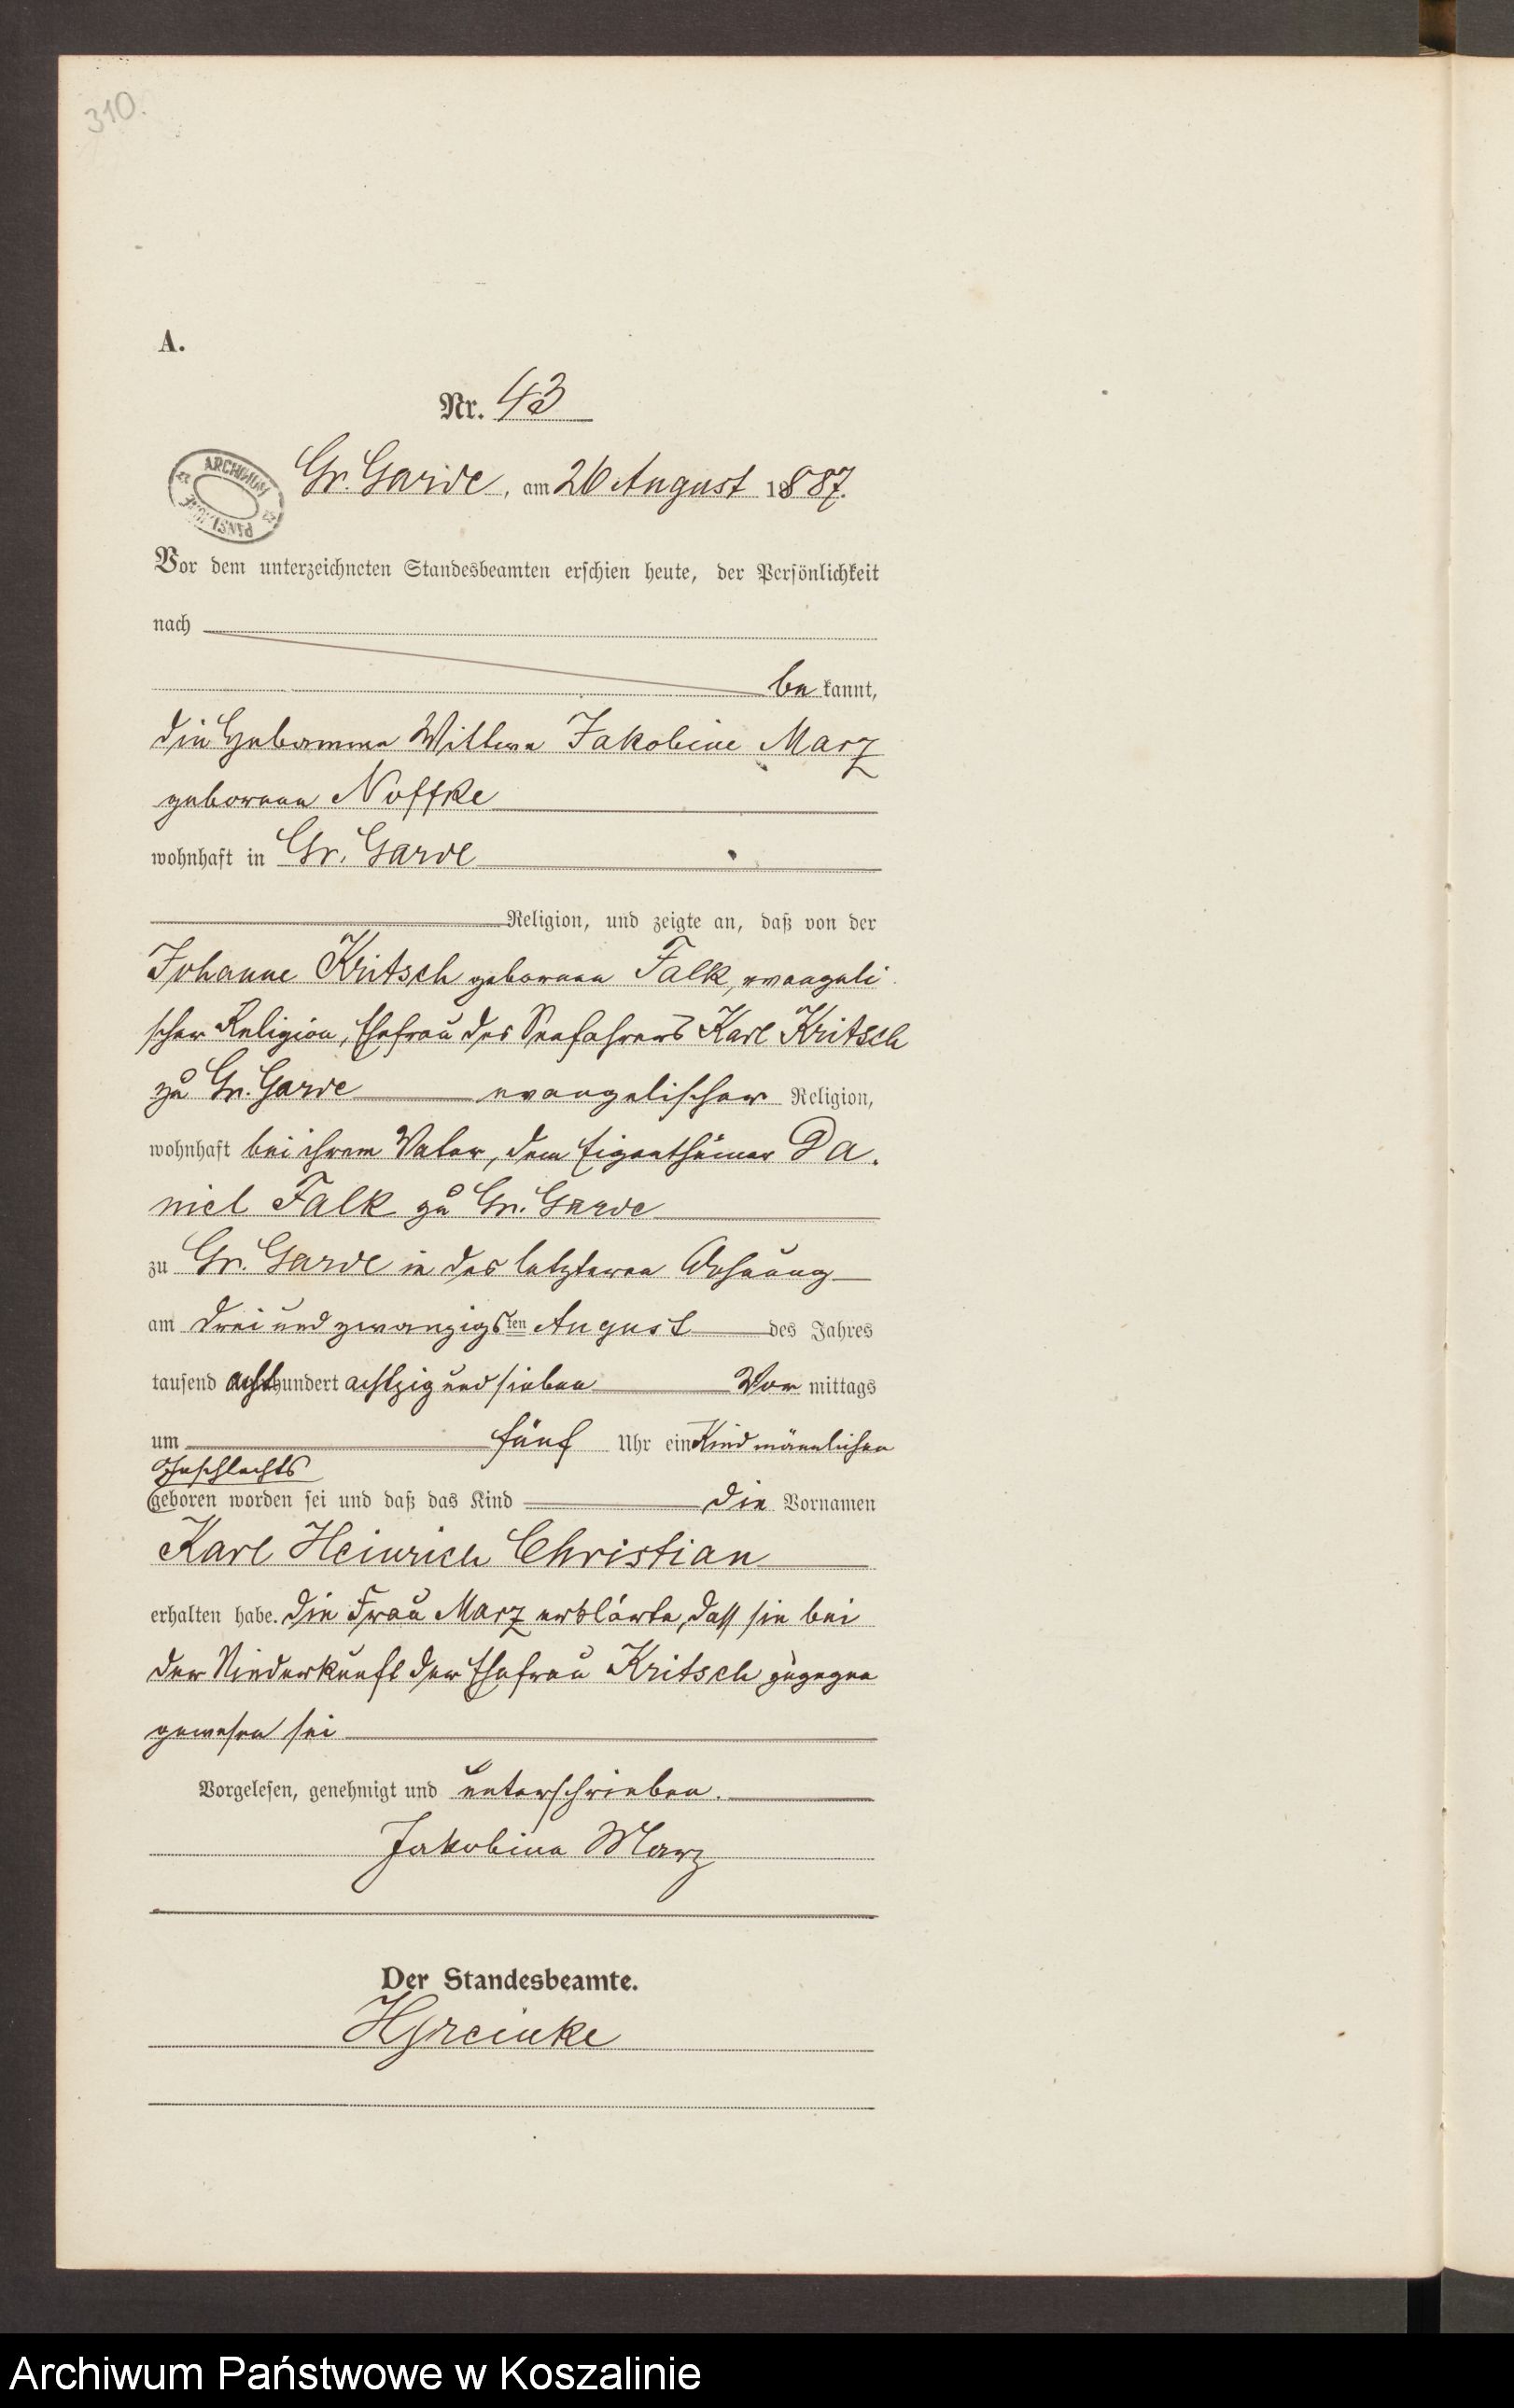 310.
A.
Nr. 43
ARCHIWUM PAŃSTWOWE
Gr. Garde, am 26 August 1887.
Vor dem unterzeichneten Standesbeamten erschien heute, der Persönlichkeit
nach
be kannt,
die Hebamme Wittwe Jakobine Marz
geborene Noffke
wohnhaft in Gr. Garde
Religion, und zeigte an, daß von der
Johanne Kritsch geborenen Falk, evangeli
scher Religion, Ehefrau des Seefahrers Karl Kritsch
zu Gr. Garde evangelischer Religion,
wohnhaft bei ihrem Vater, dem Eigenthümer Da
niel Falk zu Gr. Garde
zu Gr. Garde in des letzteren Wohnung
am drei und zwanzigsten August des Jahres
tausend achthundert achtzig und sieben Vor mittags
um fünf Uhr ein Kind männlichen
Geschlechts
geboren worden sei und daß das Kind die Vornamen
Karl Heinrich Christian
erhalten habe. Die Frau Marz erklärte, daß sie bei
der Niederkunft der Ehefrau Kritsch zugegen
gewesen sei
Vorgelesen, genehmigt und unterschrieben.
Jakobine Marz
Der Standesbeamte.
HGreinke
Archiwum Państwowe w Koszalinie